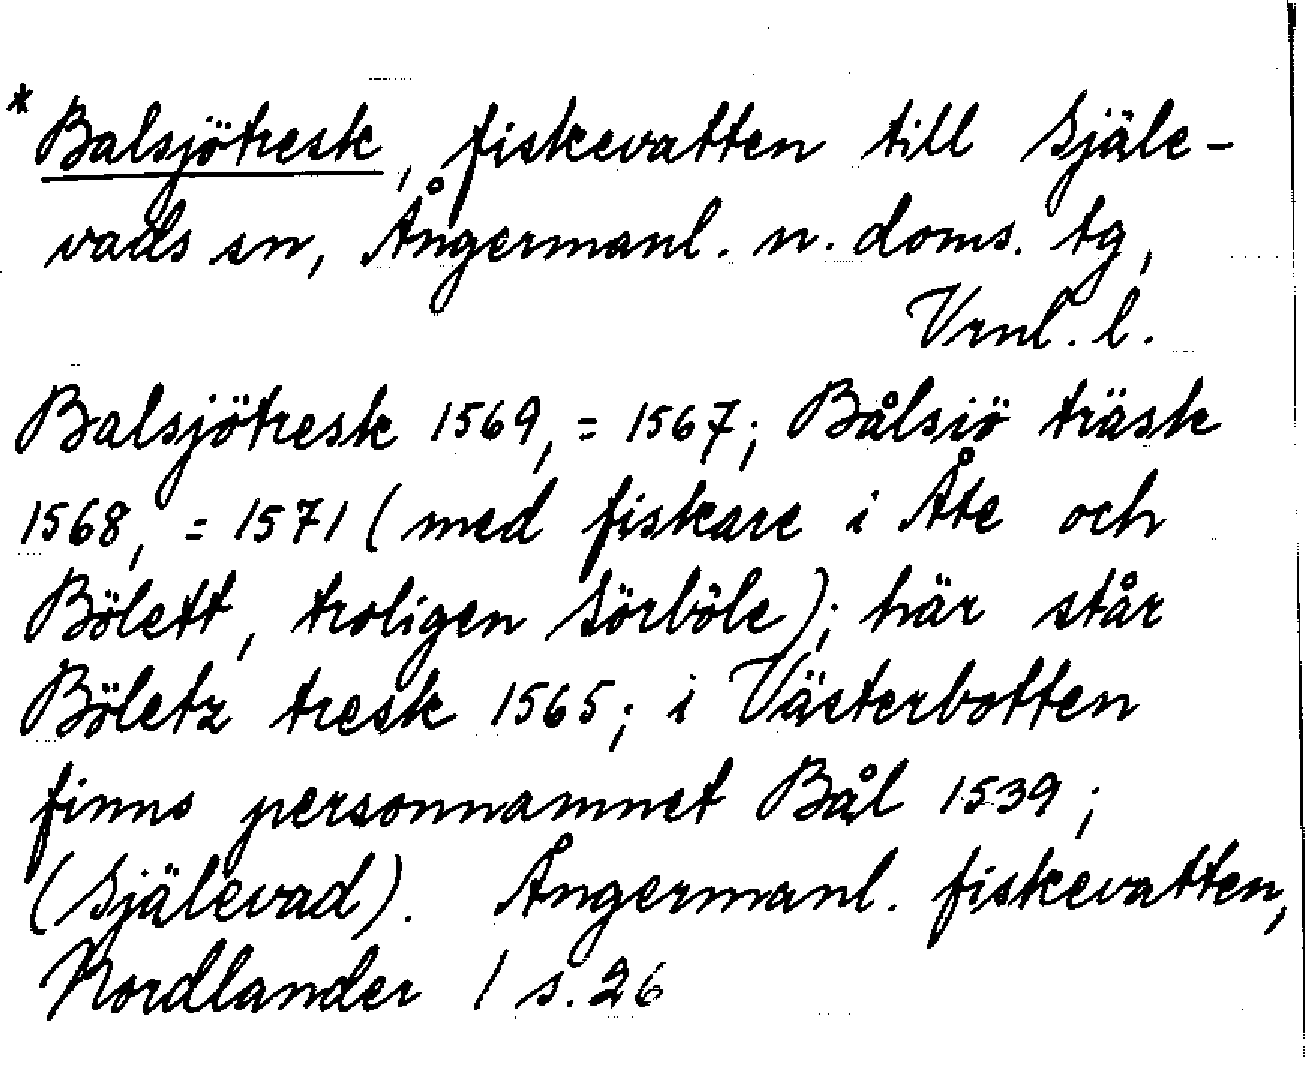 * Balsjötresk, fiskevatten till Själe-
vads sn, Ångermanl. n. doms. tg,
Vrnl. l.
Balsjötresk 1569, = 1567; Bålsiö träsk
1568, = 1571 (med fiskare i Åte och
Bölett, troligen Sörböle); här står
Böletz tresk 1565; i Västerbotten
finns personnamnet Bål 1539;
(Själevad). Ångermanl. fiskevatten,
Nordlander 1 s. 26